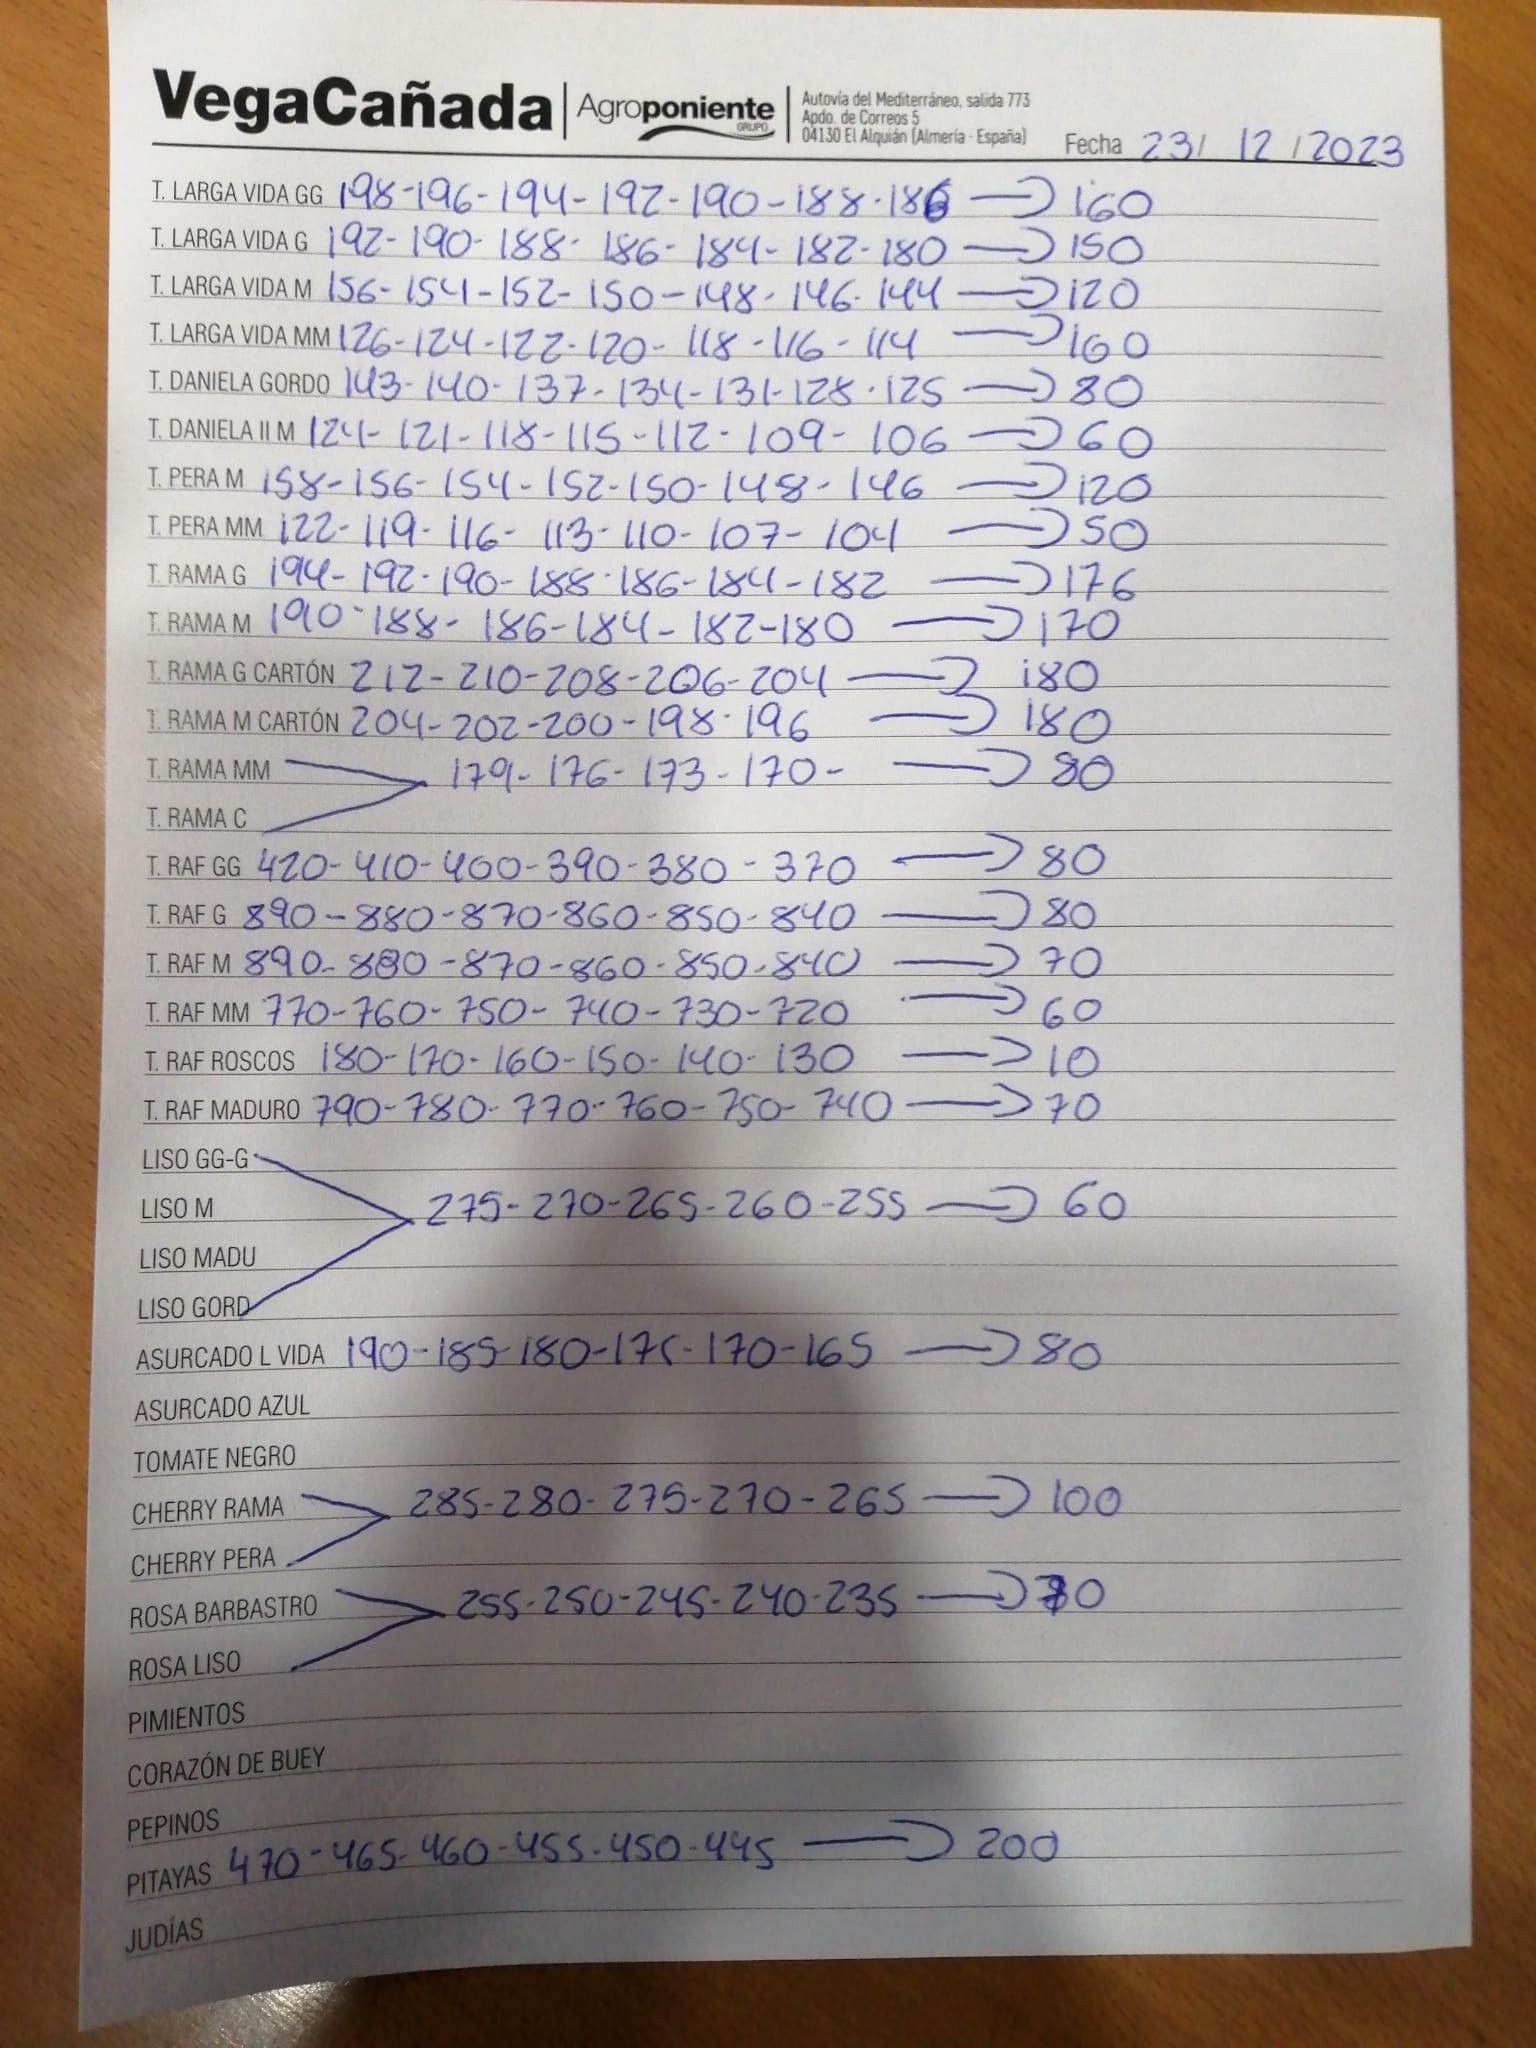 VegaCañada
Agroponiente
GRUPO
Autovía del Mediterráneo, salida 773
Apdo. de Correos 5
04130 El Alquián (Almería - España)
Fecha 23/ 12 /2023
T. LARGA VIDA GG 198-196-194-192-190-188-186 → 160
T. LARGA VIDA G 192-190-188-186-184-182-180 → 150
T. LARGA VIDA M 156-154-152-150-148-146-144 → 120
T. LARGA VIDA MM 126-124-122-120-118-116-114 → 100
T. DANIELA GORDO 143-140-137-134-131-128-125 → 80
T. DANIELA II M 124-121-118-115-112-109-106 → 60
T. PERA M 158-156-154-152-150-148-146 → 120
T. PERA MM 122-119-116-113-110-107-104 → 50
T. RAMA G 194-192-190-188-186-184-182 → 176
T. RAMA M 190-188-186-184-182-180 → 170
T. RAMA G CARTÓN 212-210-208-206-204 → 180
T. RAMA M CARTÓN 204-202-200-198-196 → 180
T. RAMA MM 179-176-173-170- → 80
T. RAMA C
T. RAF GG 420-410-400-390-380-370 → 80
T. RAF G 890-880-870-860-850-840 → 80
T. RAF M 890-880-870-860-850-840 → 70
T. RAF MM 770-760-750-740-730-720 → 60
T. RAF ROSCOS 180-170-160-150-140-130 → 10
T. RAF MADURO 790-780-770-760-750-740 → 70
LISO GG-G
LISO M 275-270-265-260-255 → 60
LISO MADU
LISO GORD
ASURCADO L VIDA 190-185-180-175-170-165 → 80
ASURCADO AZUL
TOMATE NEGRO
CHERRY RAMA 285-280-275-270-265 → 100
CHERRY PERA
ROSA BARBASTRO 255-250-245-240-235 →
ROSA LISO
PIMIENTOS
CORAZÓN DE BUEY
PEPINOS
PITAYAS 470-465-460-455-450-445 → 200
JUDÍAS